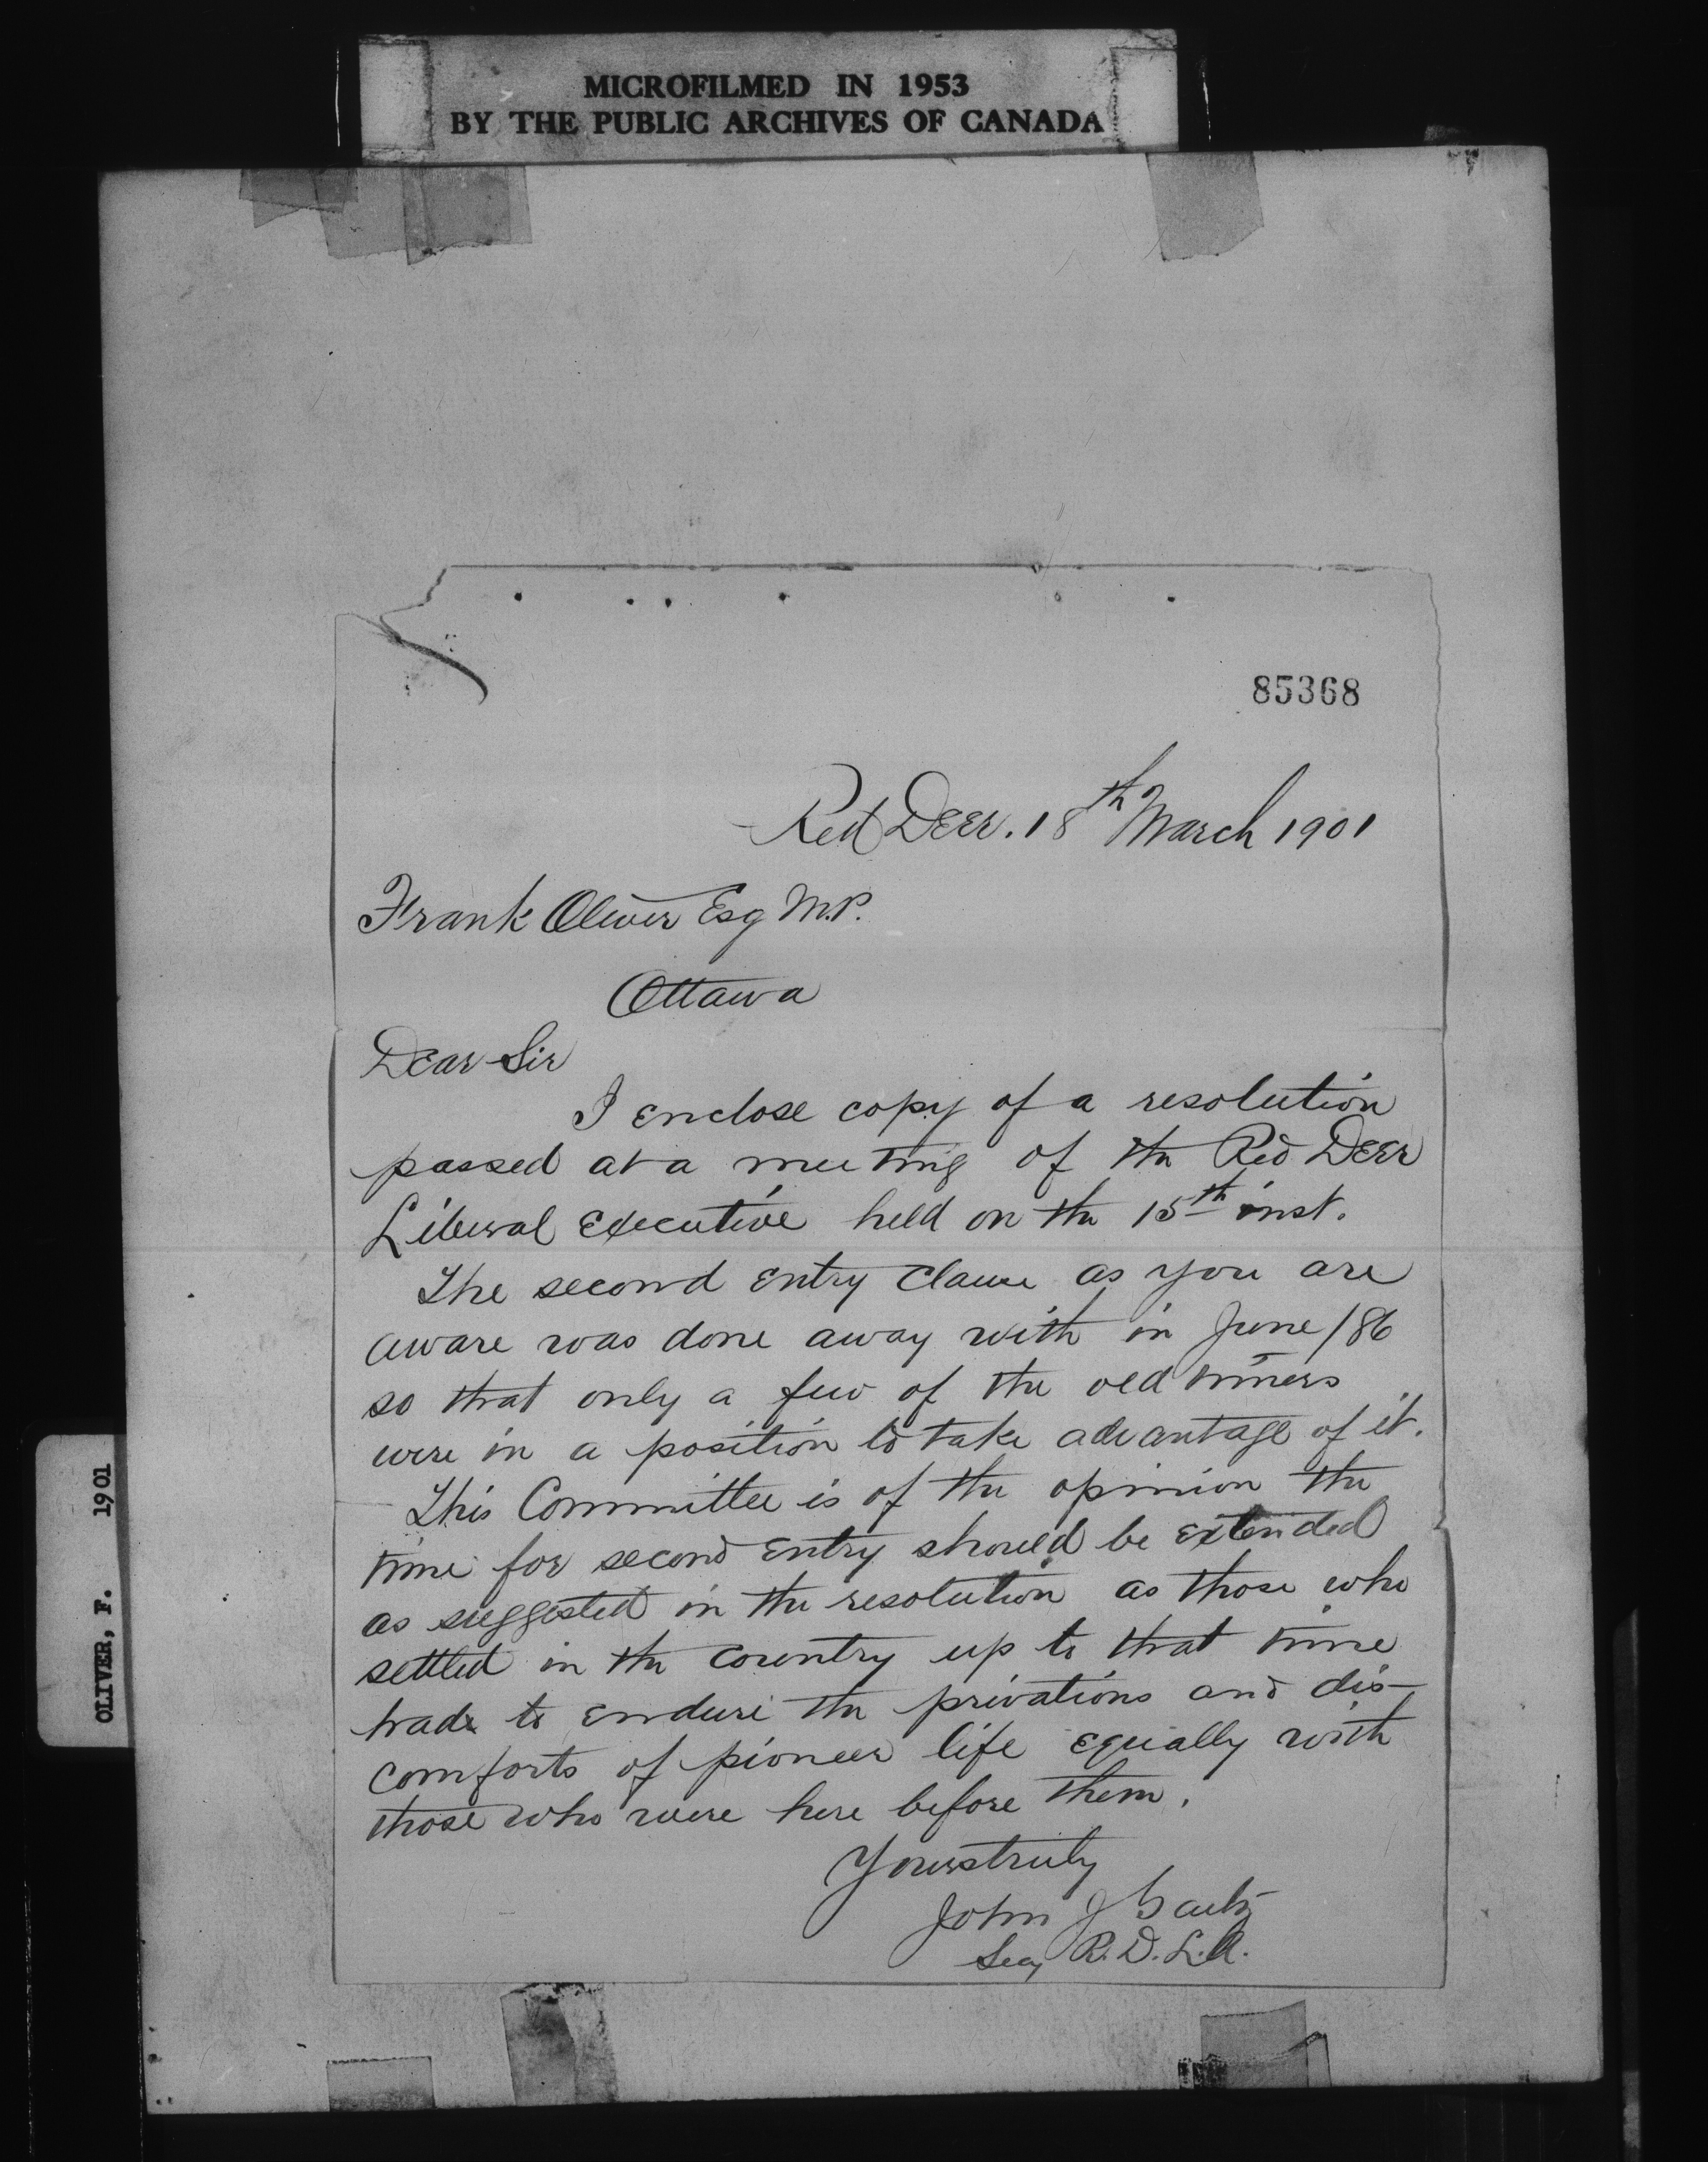 MICROFILMED IN 1953
BY THE PUBLIC ARCHIVES OF CANADA
85368
Red Deer. 18th March 1901
Frank Oliver Esq M.P.
Ottawa
Dear Sir
I enclose copy of a resolution
passed at a meeting of the Red Deer
Liberal Executive held on the 15th inst.
The second entry clause as you are
aware was done away with in June /86
so that only a few of the old timers
were in a position to take advantage of it.
This Committee is of the opinion the
time for second entry should be extended
as suggested in the resolution as those who
settled in the country up to that time
had to endure the privations and dis-
comforts of pioneer life equally with
those who were here before them.
Yours truly
John J Gaetz
Secy R. D. L. A.
OLIVER, F. 1901